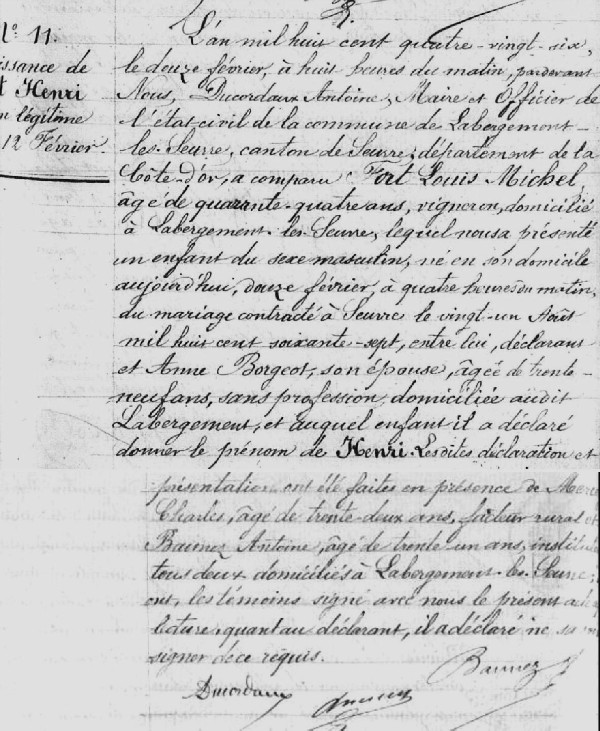 N° 11.
issance de
t Henri
n légitime
12 Février
L'an mil huit cent quatre-vingt-six,
le douze février, à huit heures du matin, pardevant
Nous, Ducordaux Antoine, Maire et Officier de
l'état civil de la commune de Labergement-
les-Seurre, canton de Seurre, département de la
Côte-d'or, a comparu Fort Louis Michel,
âgé de quarante-quatre ans, vigneron, domicilié
à Labergement-les-Seurre, lequel nous a présenté
un enfant du sexe masculin, né en son domicile
aujourd'hui, douze février, à quatre heures du matin,
du mariage contracté à Seurre le vingt-un Août
mil huit cent soixante-sept, entre lui, déclarant
et Anne Borgeot, son épouse, âgée de trente-
neuf ans, sans profession, domiciliée audit
Labergement, et auquel enfant il a déclaré
donner le prénom de Henri. Lesdites déclaration et
présentation ont été faites en présence de
Charles, âgé de trente-deux ans, facteur rural et
Baunez Antoine, âgé de trente-un ans, institu
tous deux domiciliés à Labergement-les-Seurre,
ont, les témoins signé avec nous le présent
lecture, quant au déclarant, il a déclaré ne
signer de ce requis.
Baunez
Ducordaux